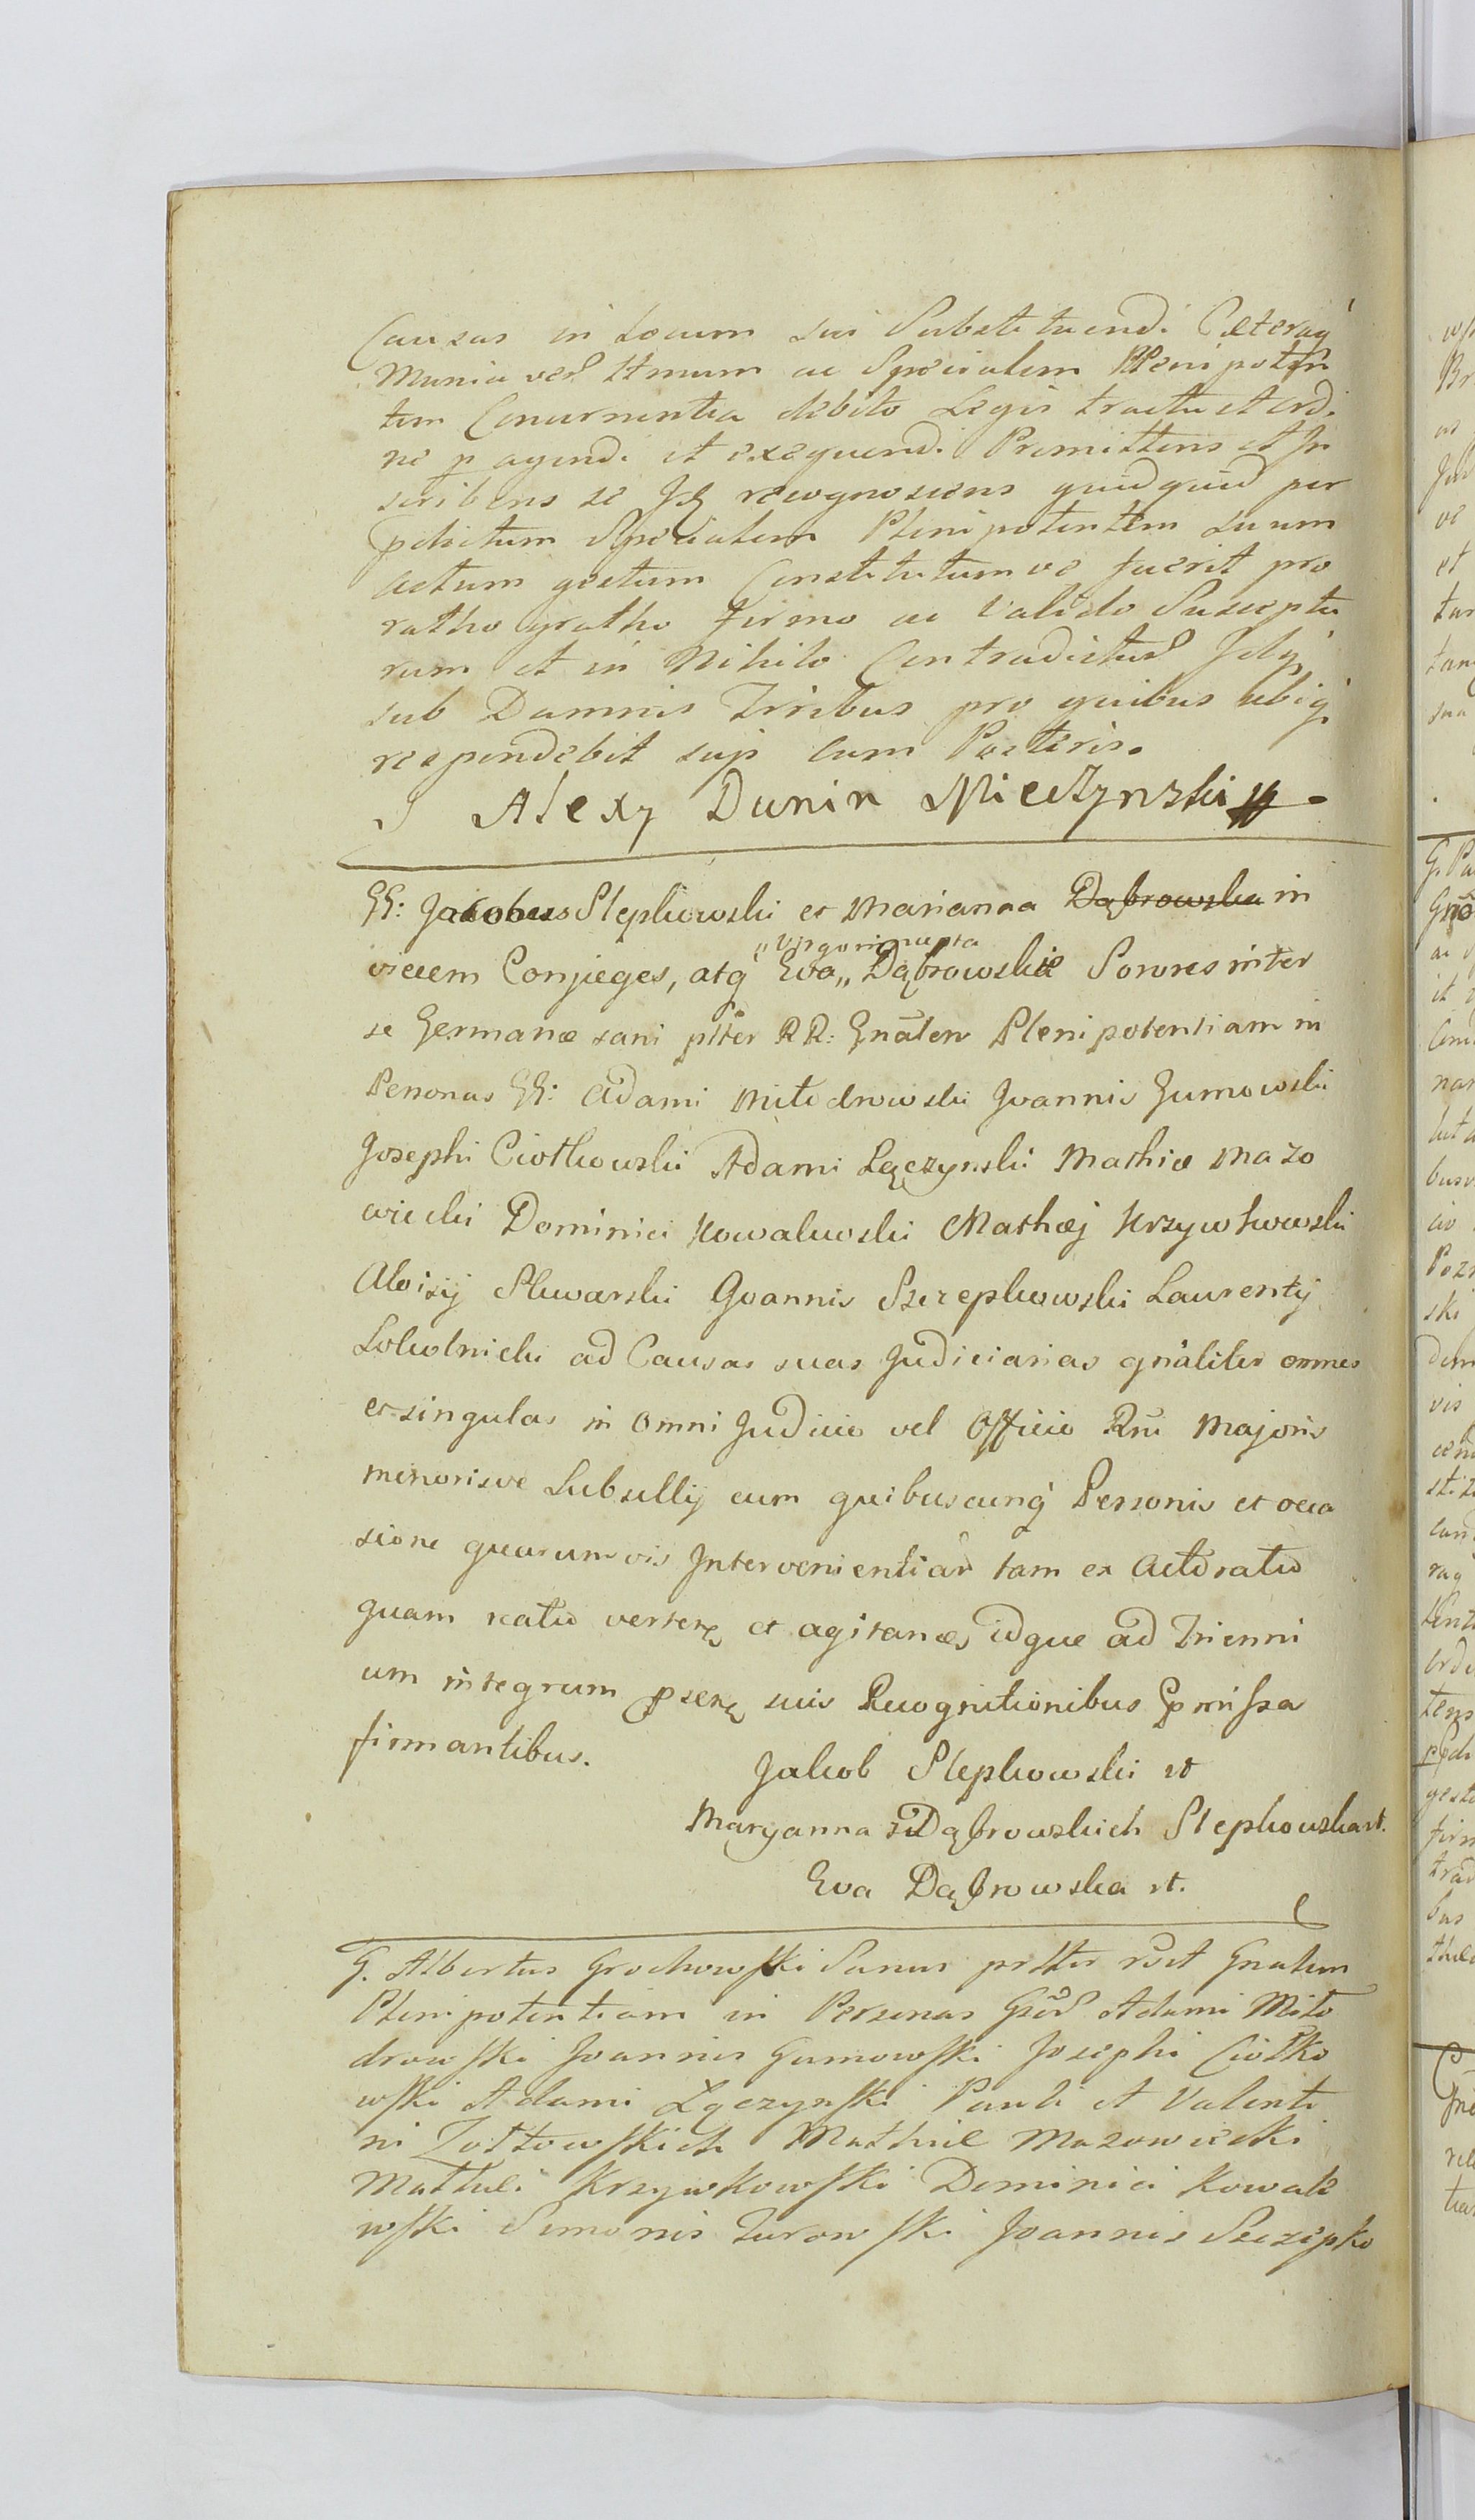 Causas in Locum sui Substituendi Cæteraq
Munia ved Itmum ac Specialem Plenipoten
tem Concernentia debito Legis tractu et ordi
ne p agendi et exequendi Promittens et In
scribens se Jdq recognoscens quidquid per
pdictum Specialem Plenipotentem suum
actum gestum Constitutumve fuerit pro
ratho gratho firmo ac valido Susceptu
rum et in Nihilo Contradictur
sub Damnis Trribus pro quibus ubiq
respondebit sup cum Posteris.
Alexy Dunin Mieczynski
GG: Jacobus Slepkowski et Marianna Dąbrowska in
vicem Conjuges, atq Eva „ Dąbrowskie Sorores inter
„Virgo innupta
se Germanæ sani pltér RR: Gnalem Plenipotentiam in
Personas GG: Adami Miłodrowski Joannis Gumowski
Josephi Ciołkowski Adami Łączynski Mathiæ Mazo
wiecki Dominici Kowalewski Mathæj Krzywkowski
Aloisij Sluwarski Joannis Szczepkowski Laurentij
Lokolnicki ad Causas suas Judiciarias gnaliter omnes
et singulas in omni Judicio vel Officio Rni Majoris
minorisve Subsellij cum quibuscunq Personis et occa
sione quarumvis Intervenientiar tam ex Actoratu
quam reatu verten et agitan idque ad Trienni
um integrum psen suis Recognitionibus pmissa
firmantibus.
Jakob Slepkowski
Maryanna z Dąbrowskich Slepkowska
Eva Dąbrowska
G. Albertus Grochowski Sanus pltter rct Gnalem
Plenipotentiam in Personas Adami Miło
drowski Joannis Gumowski Josephi Ciołko
wski Adami Łączynski Pauli et Valenti
ni Zołtowskich Mathiæ Mazowiecki
Matthei Krzywkowski Dominici Kowale
wski Simonis Zurowski Joannis Szczepko